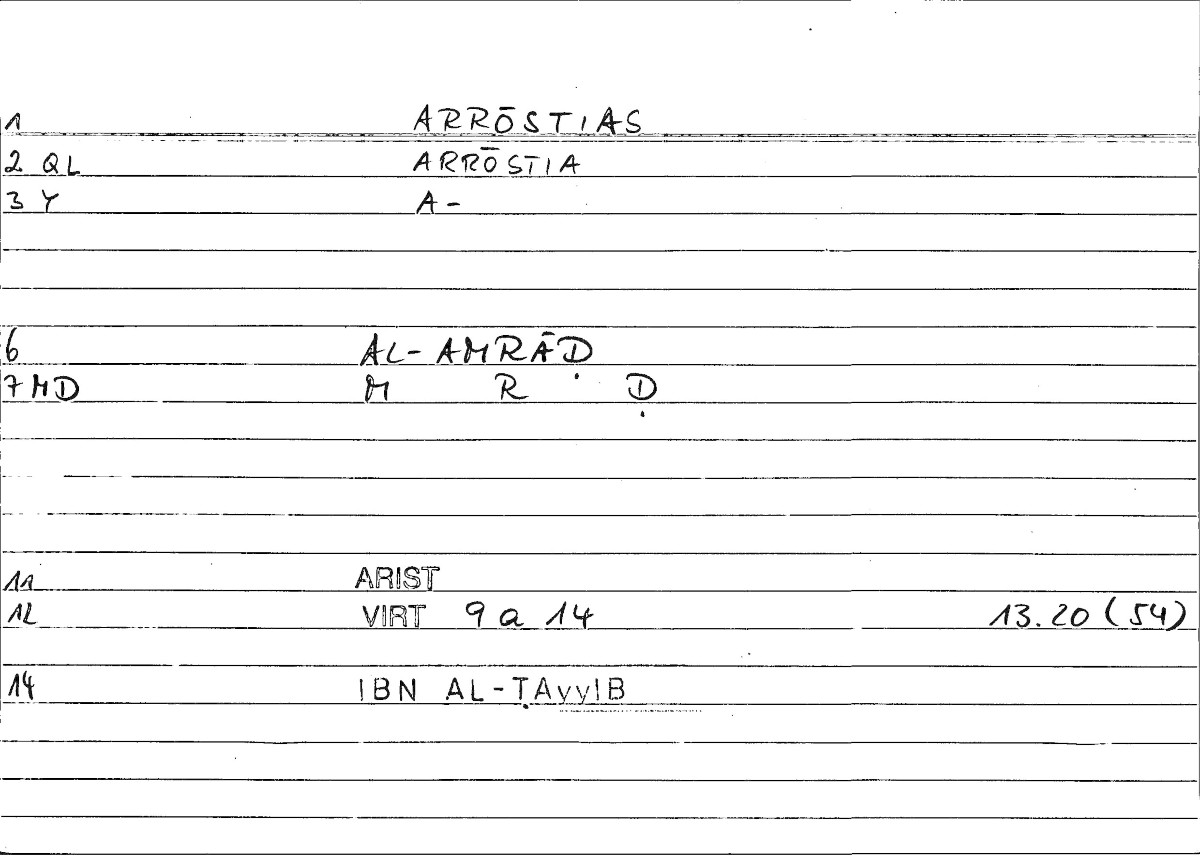 1 ARRŌSTIAS
2 QL ARRŌSTIA
3 Y A-
6 AL-AMRĀḌ
7 MD M R Ḍ
11 ARIST
12 VIRT 9 a 14 13.20 (54)
14 IBN AL-ṬAyyIB